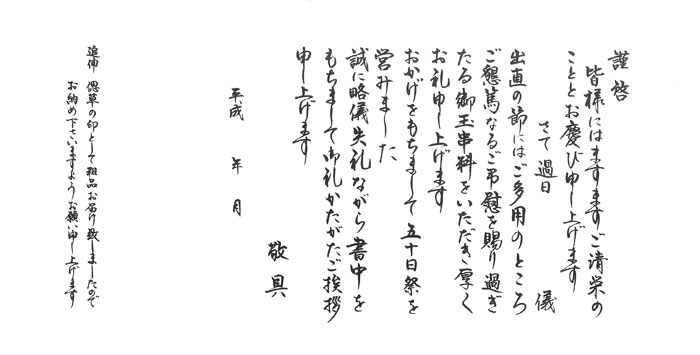 謹啓
皆様にはますますご清栄の
こととお慶び申し上げます
さて過日　　儀
出直の節にはご多用のところ
ご懇篤なるご弔慰を賜り過ぎ
たる御玉串料をいただき厚く
お礼申し上げます
おかげをもちまして五十日祭を
営みました
誠に略儀失礼ながら書中を
もちまして御礼かたがたご挨拶
申し上げます
敬具
平成　年　月
追伸　偲草の印として粗品お届け致しましたので
お納め下さいますようお願い申し上げます